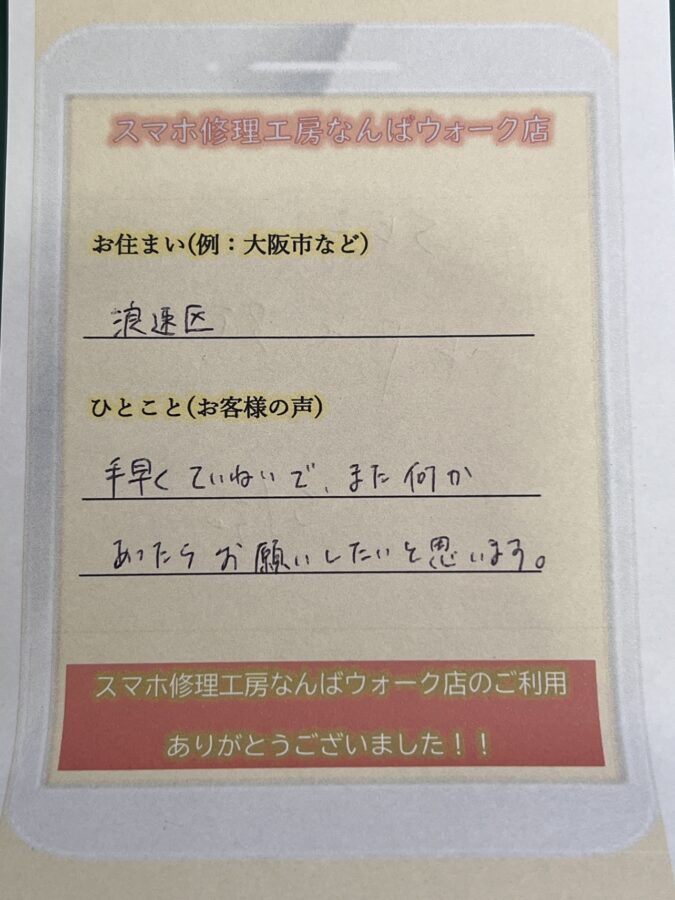 スマホ修理工房なんばウォーク店
お住まい(例：大阪市など)
浪速区
ひとこと(お客様の声)
手早くていねいで、また何か
あったらお願いしたいと思います。
スマホ修理工房なんばウォーク店のご利用
ありがとうございました！！